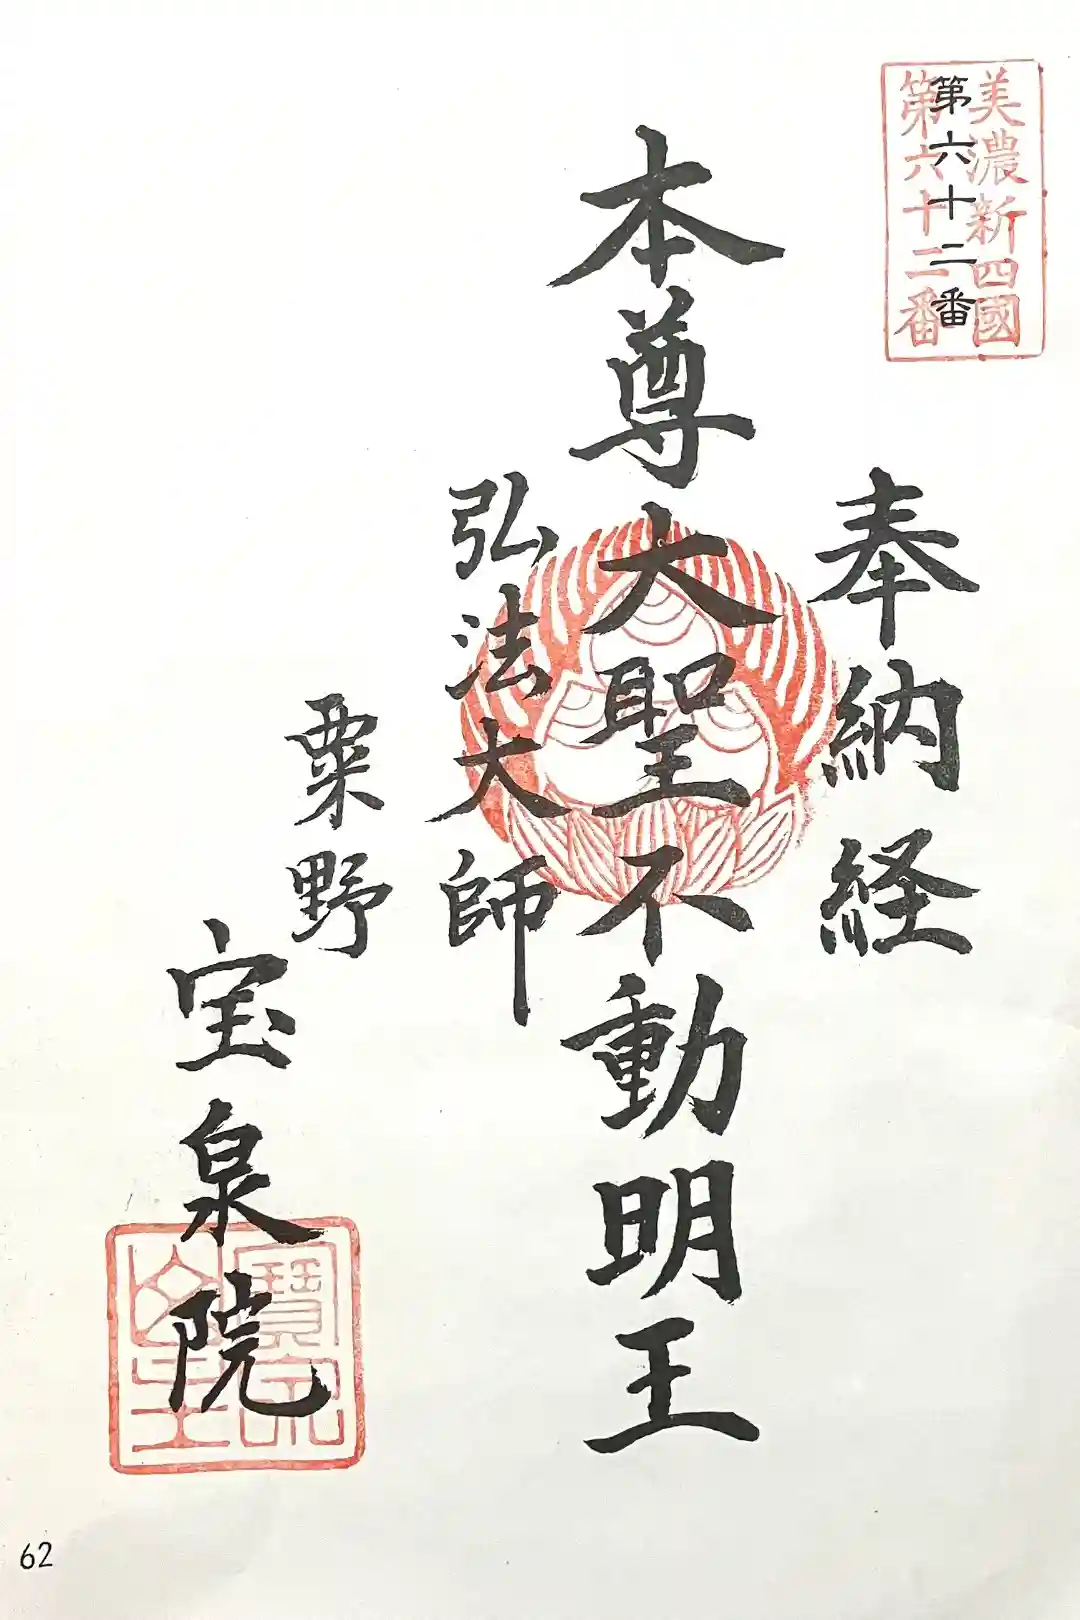 美濃新四國
第六十二番
第六十二番
奉納経
本尊大聖不動明王
弘法大師
粟野
宝泉院
寶泉
62